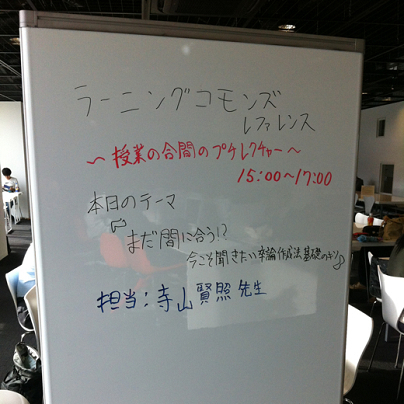 ラーニングコモンズ
レファレンス
〜授業の合間のプチレクチャー〜
15:00〜17:00
本日のテーマ
まだ間に合う!?
今こそ聞きたい卒論作成法基礎のキソ♪
担当：寺山賢照 先生